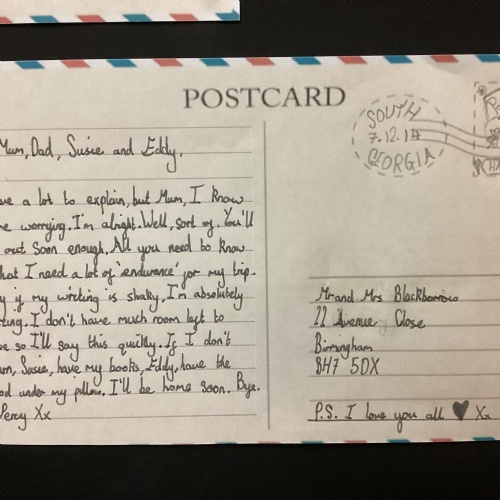 POSTCARD
SOUTH
7.12.14
GEORGIA
Mum, Dad, Susie and Eddy,
ve a lot to explain, but Mum, I know
re worrying. I'm alright. Well, sort of. You'll
out soon enough. All you need to know
hat I need a lot of 'endurance' for my trip.
y if my writing is shaky, I'm absolutely
ting. I don't have much room left to
e so I'll say this quickly. If I don't
urn, Susie, have my books, Eddy, have the
od under my pillow. I'll be home soon. Bye.
Percy Xx
Mr and Mrs Blackborrow
22 Avenue Close
Birmingham
BH7 5DX
P.S. I love you all ♥ Xx